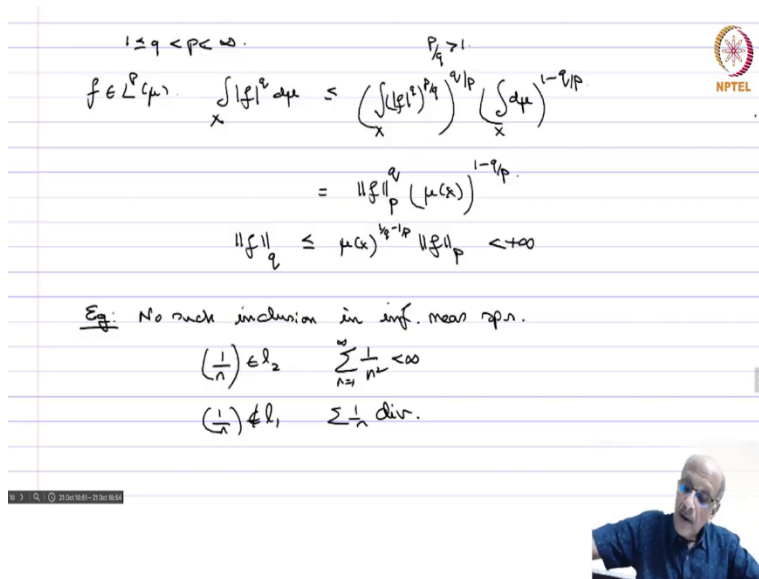 1 ≤ q < p < ∞. p/q > 1
NPTEL
f ∈ L^p(μ). ∫_X |f|^q dμ ≤ (∫_X (|f|^q)^{p/q})^{q/p} (∫_X dμ)^{1-q/p}
= ||f||_p^q (μ(X))^{1-q/p}.
||f||_q ≤ μ(X)^{1/q-1/p} ||f||_p < +∞
Eg: No such inclusion in inf. meas sps.
(1/n) ∈ l_2 ∑_{n=1}^∞ 1/n^2 < ∞
(1/n) ∉ l_1 ∑ 1/n div.
21 Oct 18:51 - 21 Oct 18:54